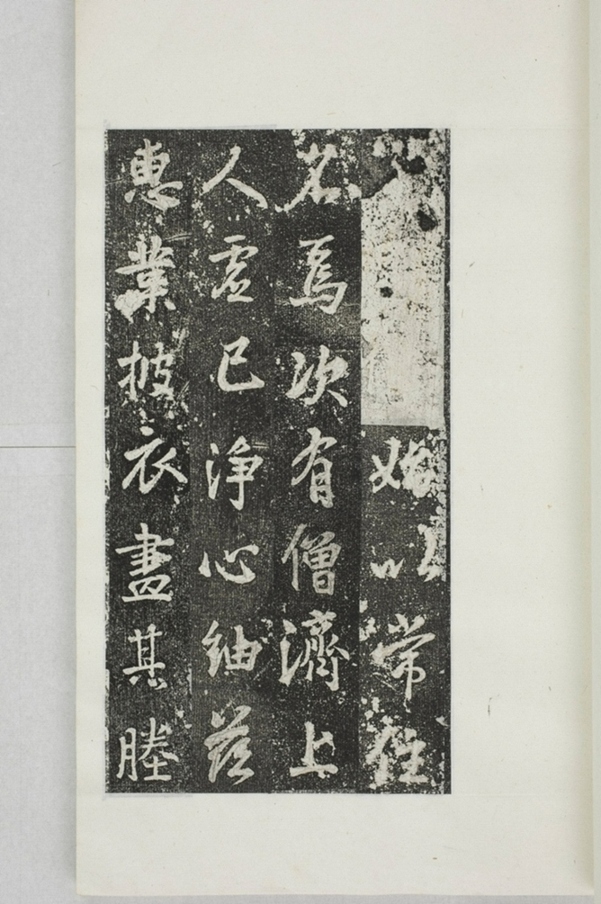 始以常住
名焉次有僧濟上
人虛已淨心紬茲
惠業披衣盡其塍